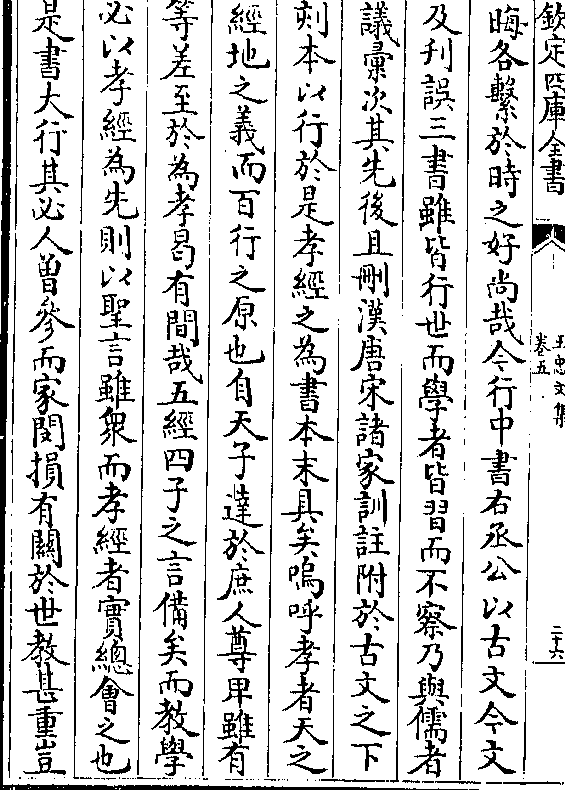 欽定四庫全書
王忠文集
卷五
二十六
晦各繫於時之好尚哉今行中書右丞公以古文今文
及刋誤三書雖皆行世而學者皆習而不察乃與儒者
議彚次其先後且刪漢唐宋諸家訓註附於古文之下
刻本以行於是孝經之為書本末具矣嗚呼孝者天之
經地之義而百行之原也自天子達於庶人尊卑雖有
等差至於為孝曷有間哉五經四子之言備矣而教學
必以孝經為先則以聖言雖衆而孝經者實總會之也
是書大行其必人曾參而家閔損有關於世教甚重豈